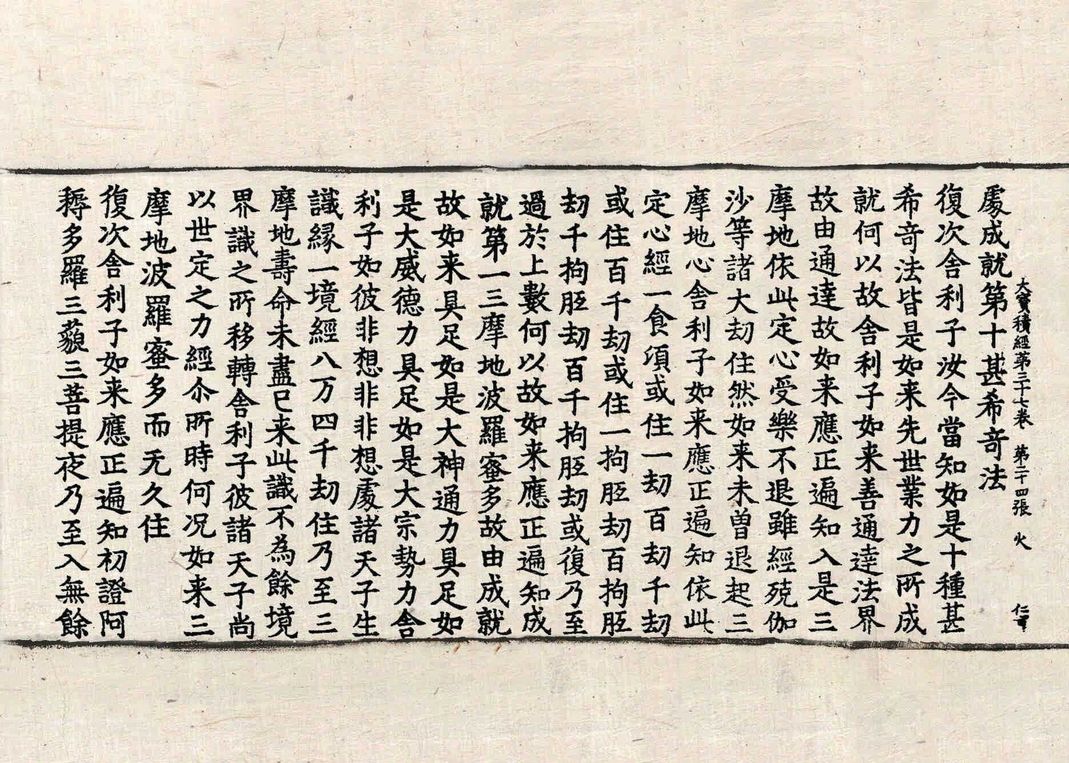 大寶積經第三十七卷 第二十四張 火
處成就第十甚希竒法
復次舍利子汝今當知如是十種甚
希竒法皆是如来先世業力之所成
就何以故舍利子如来善通達法界
故由通達故如来應正遍知入是三
摩地依此定心受樂不退雖經殑伽
沙等諸大劫住然如来未曽退起三
摩地心舍利子如来應正遍知依此
定心經一食頃或住一劫百劫千劫
或住百千劫或住一拘胝劫百拘胝
劫千拘胝劫百千拘胝劫或復乃至
過於上數何以故如来應正遍知成
就第一三摩地波羅蜜多故由成就
故如来具足如是大神通力具足如
是大威德力具足如是大宗勢力舍
利子如彼非想非非想處諸天子生
識緣一境經八万四千劫住乃至三
摩地壽命未盡已来此識不為餘境
界識之所移轉舍利子彼諸天子尚
以世定之力經尒所時何况如来三
摩地波羅蜜多而无久住
復次舍利子如来應正遍知初證阿
耨多羅三藐三菩提夜乃至入無餘